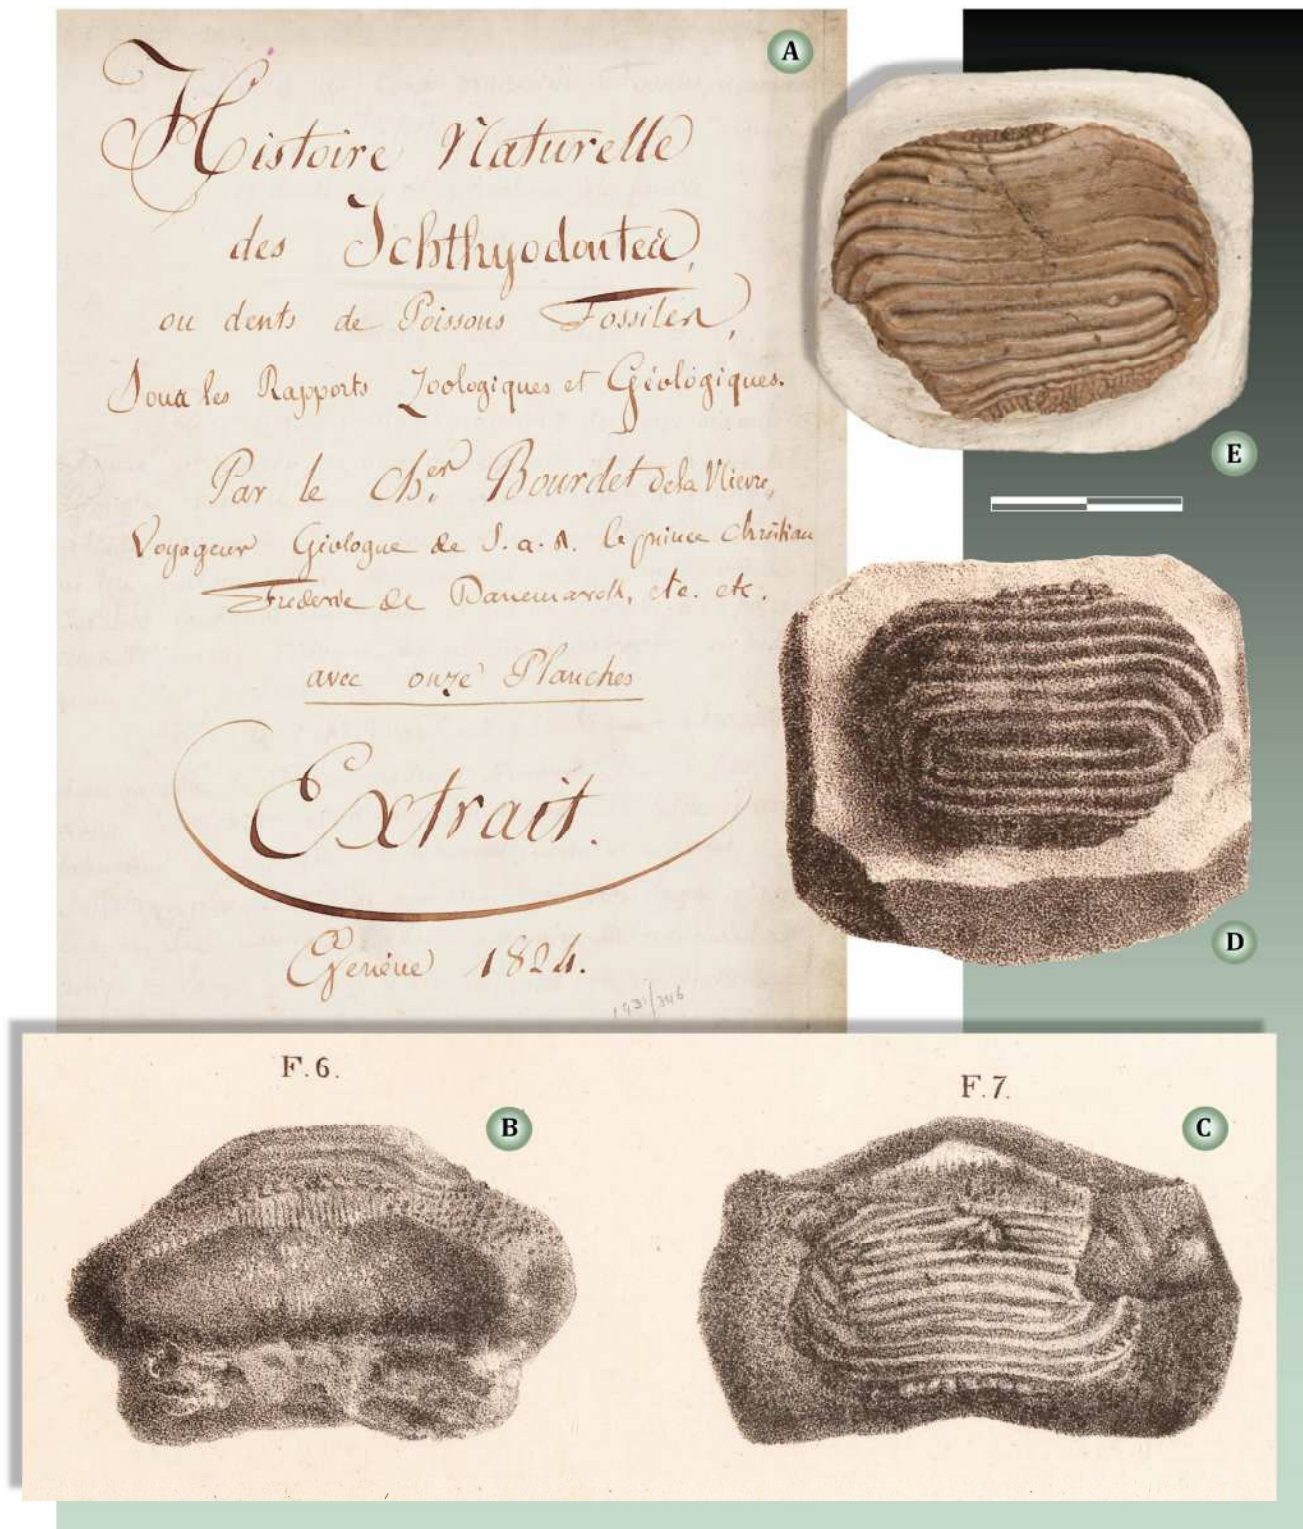 A
Histoire Naturelle
des Ichthyodontes,
ou dents de Poissons Fossiles,
Sous les Rapports Zoologiques et Géologiques.
Par le Ch.er Bourdet de la Nievre,
Voyageur Géologue de S. a. R. le prince Chrêtian
Frederic de Danemarck, etc. etc.
avec onze Planches
Extrait.
Genève 1824.
1931/346
E
D
F.6.
B
F.7.
C